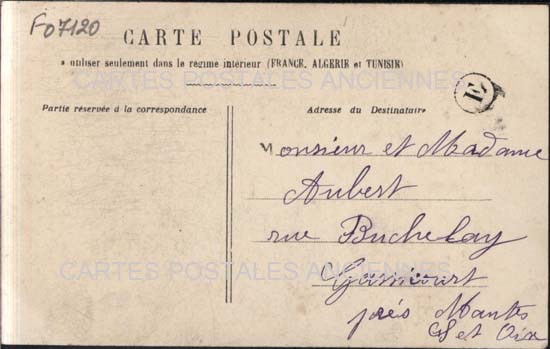 F07120
CARTE POSTALE
à utiliser seulement dans le régime intérieur (FRANCE, ALGERIE et TUNISIE)
CARTES POSTALES ANCIENNES
Partie réservée à la correspondance
Adresse du Destinataire
E
Monsieur et Madame
Aubert
rue Buchelay
CARTES POSTALES ANCIENNES
Gassicourt
près Mantes
S et Oise